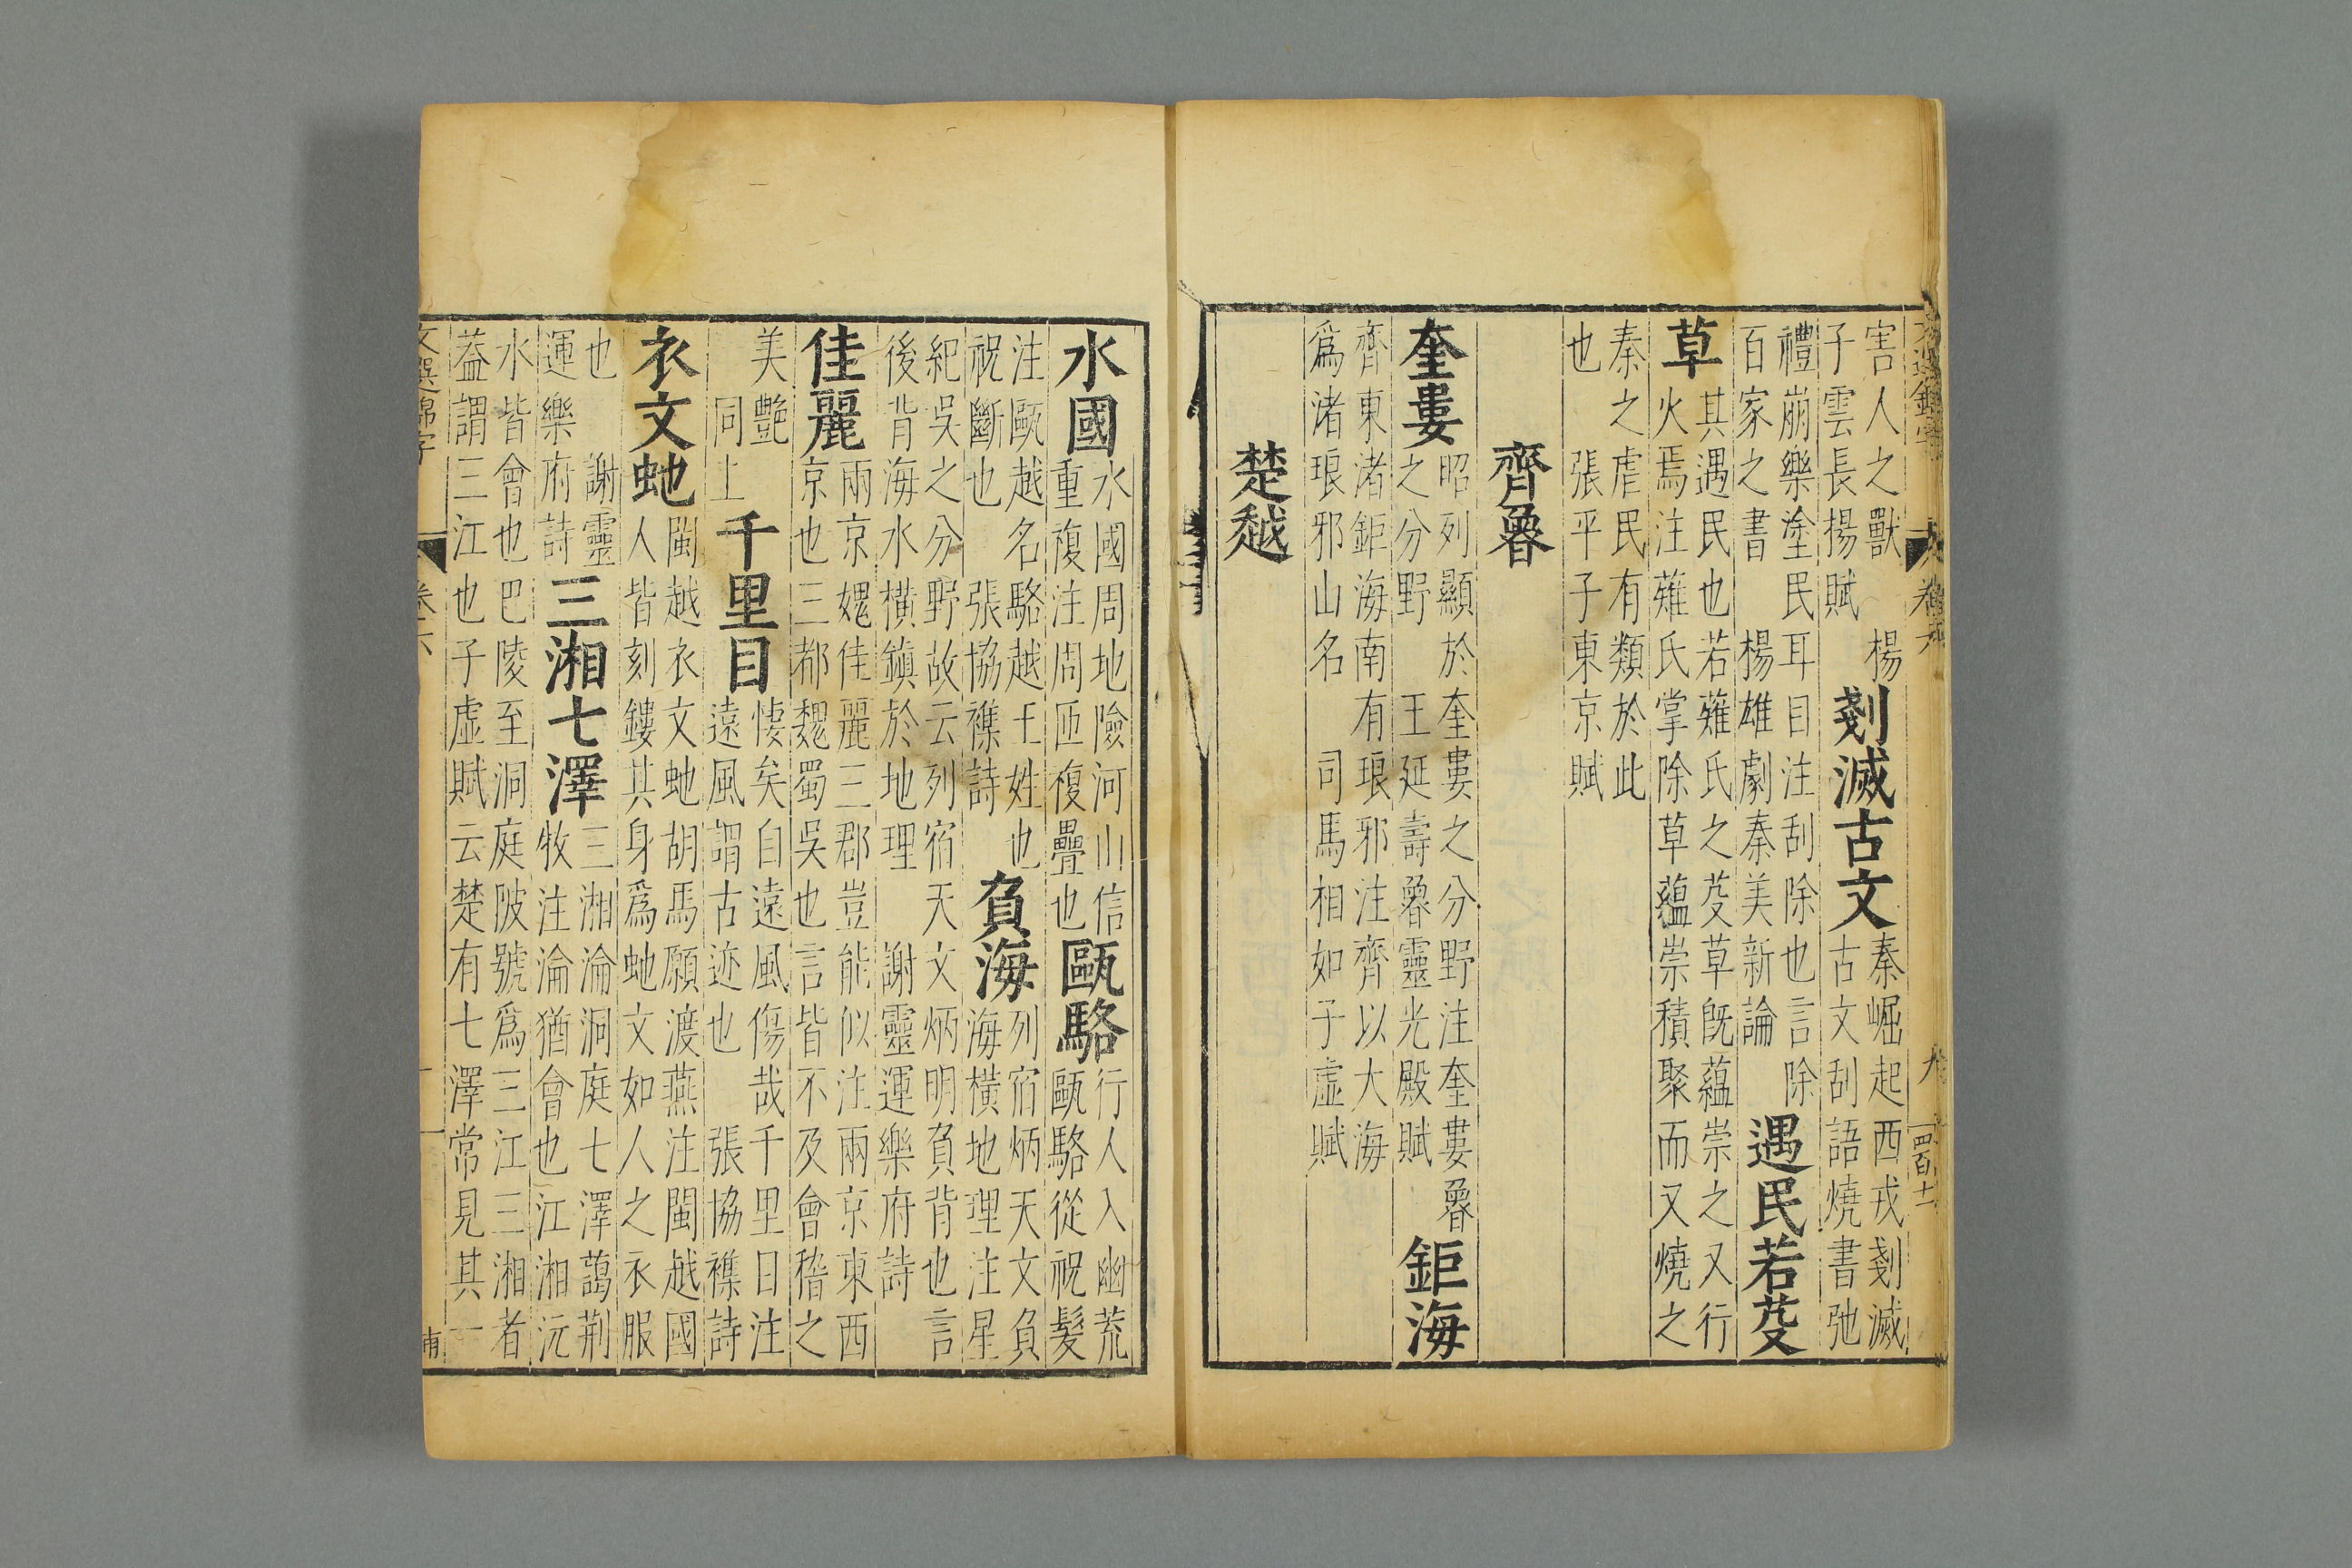 害人之獸　楊
子雲長揚賦
剗滅古文
秦崛起西戎剗滅
古文刮語燒書弛
禮崩樂塗民耳目注刮除也言除
百家之書　楊雄劇秦美新論
遇民若芟
草
其遇民也若薙氏之芟草既蘊崇之又行
火焉注薙氏掌除草蘊崇積聚而又燒之
秦之虐民有類於此
也　張平子東京賦
齊魯
奎婁
昭列顯於奎婁之分野注奎婁魯
之分野　王延壽魯靈光殿賦
鉅海
齊東渚鉅海南有琅邪注齊以大海
為渚琅邪山名　司馬相如子虛賦
楚越
水國
水國周地險河山信
重複注周匝複疊也
甌駱
行人入幽荒
甌駱從祝髮
注甌越名駱越王姓也
祝斷也　張協襍詩
負海
列宿炳天文負
海橫地理注星
紀吳之分野故云列宿天文炳明負背也言
後背海水橫鎮於地理　謝靈運樂府詩
佳麗
兩京媿佳麗三郡豈能似注兩京東西
京也三都魏蜀吳也言皆不及會稽之
美艷
同上
千里目
悽矣自遠風傷哉千里目注
遠風謂古迹也　張協襍詩
衣文虵
閩越衣文虵胡馬願渡燕注閩越國
人皆刻鏤其身為虵文如人之衣服
也　謝靈
運樂府詩
三湘七澤
三湘淪洞庭七澤藹荆
牧注淪猶會也江湘沅
水皆會也巴陵至洞庭陂號為三江三湘者
葢謂三江也子虛賦云楚有七澤常見其一
文選錦字
卷六